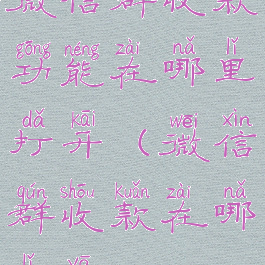 微信群收款
gōng néng zài nǎ lǐ
功能在哪里
dǎ kāi wēi xìn
打开（微信
qún shōu kuǎn zài nǎ
群收款在哪
lǐ